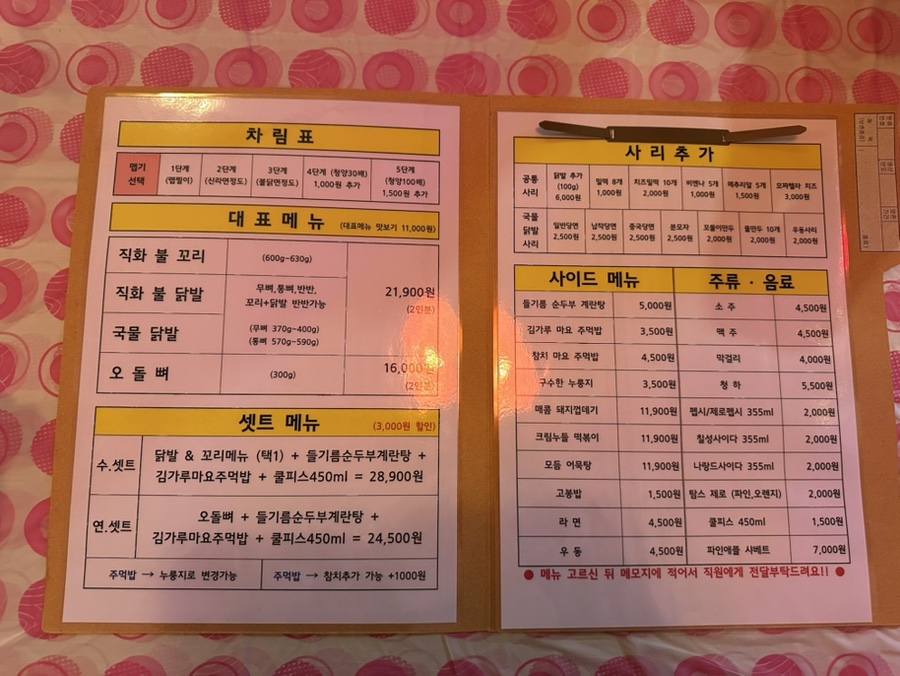 차림표
맵기 선택
1단계 (맵찔이)
2단계 (신라면정도)
3단계 (불닭면정도)
4단계 (청양30배) 1,000원 추가
5단계 (청양100배) 1,500원 추가
대표메뉴 (대표메뉴 맛보기 11,000원)
직화 불 꼬리 (600g~630g)
직화 불 닭발 무뼈,통뼈,반반, 꼬리+닭발 반반가능
21,900원 (2인분)
국물 닭발 (무뼈 370g~400g) (통뼈 570g~590g)
오 돌 뼈 (300g) 16,000원 (2인분)
셋트 메뉴 (3,000원 할인)
수.셋트
닭발 & 꼬리메뉴 (택1) + 들기름순두부계란탕 +
김가루마요주먹밥 + 쿨피스450ml = 28,900원
연.셋트
오돌뼈 + 들기름순두부계란탕 +
김가루마요주먹밥 + 쿨피스450ml = 24,500원
주먹밥 → 누룽지로 변경가능
주먹밥 → 참치추가 가능 +1000원
사리추가
공통 사리
닭발 추가 (100g) 6,000원
밀떡 8개 1,000원
치즈밀떡 10개 2,000원
비엔나 5개 1,000원
메추리알 5개 1,500원
모짜렐라 치즈 3,000원
국물 닭발 사리
일반당면 2,500원
납작당면 2,500원
중국당면 2,500원
분모자 2,500원
꼬물이만두 2,000원
물만두 10개 2,000원
우동사리 2,000원
사이드 메뉴
들기름 순두부 계란탕 5,000원
김가루 마요 주먹밥 3,500원
참치 마요 주먹밥 4,500원
구수한 누룽지 3,500원
매콤 돼지껍데기 11,900원
크림누들 떡볶이 11,900원
모듬 어묵탕 11,900원
고봉밥 1,500원
라 면 4,500원
우 동 4,500원
주류 · 음료
소 주 4,500원
맥 주 4,500원
막걸리 4,000원
청 하 5,500원
펩시/제로펩시 355ml 2,000원
칠성사이다 355ml 2,000원
나랑드사이다 355ml 2,000원
탐스 제로 (파인,오렌지) 2,000원
쿨피스 450ml 1,500원
파인애플 샤베트 7,000원
● 메뉴 고르신 뒤 메모지에 적어서 직원에게 전달부탁드려요!! ●